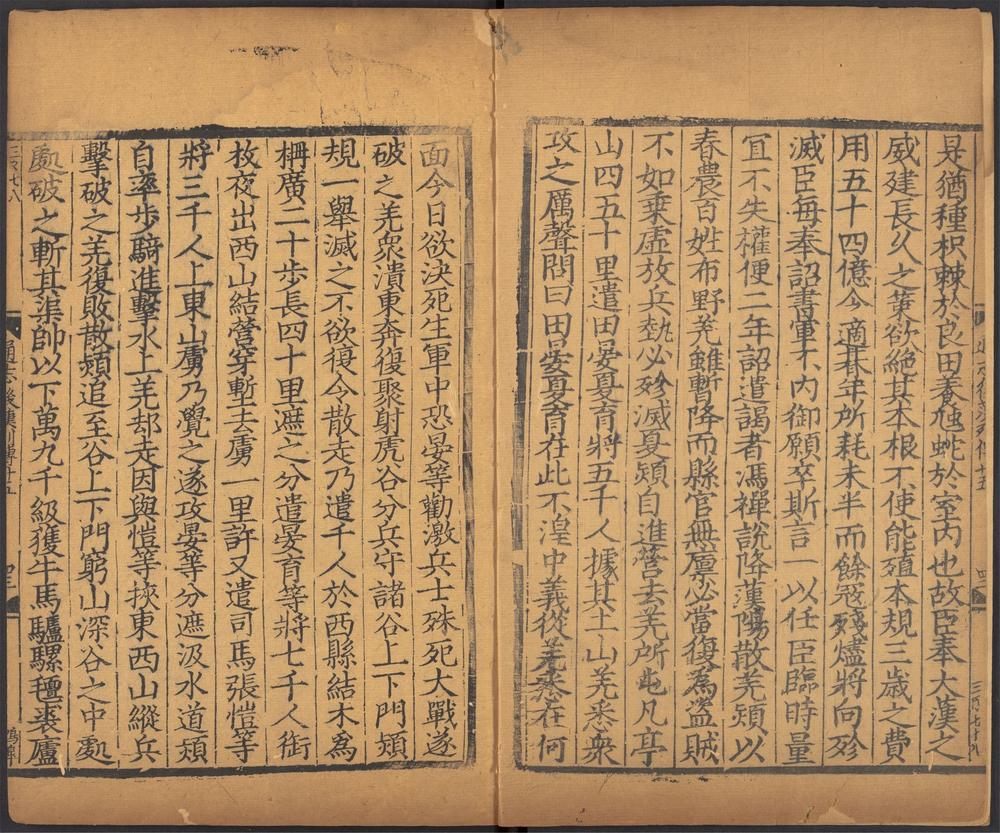 是猶種枳棘於良田養虺蛇於室内也故臣奉大漢之
威建長久之策欲絶其本根不使能殖本規三歳之費
用五十四億今適朞年所耗未半而餘寇殘燼將向殄
滅臣每奉詔書軍不内御願卒斯言一以任臣臨時量
宜不失權便二年詔遣謁者馮禪說降漢陽散羌熲以
春農百姓布野羌雖暫降而縣官無廩必當復爲盜賊
不如乗虚放兵勢必殄滅夏熲自進營去羌所屯凡亭
山四五十里遣田晏夏育將五千人據其上山羌悉衆
攻之厲聲問曰田晏夏育在此不湟中義從羌悉在何
面今日欲決死生軍中恐晏等勸激兵士殊死大戰遂
破之羌衆潰東奔復聚射虎谷分兵守諸谷上下門熲
規一舉滅之不欲復令散走乃遣千人於西縣結木爲
柵廣二十步長四十里遮之分遣晏育等將七千人銜
枚夜出西山結營穿塹去虜一里許又遣司馬張愷等
將三千人上東山虜乃覺之遂攻晏等分遮汲水道熲
自率步騎進擊水上羌却走因與愷等挾東西山縱兵
擊破之羌復敗散熲追至谷上下門窮山深谷之中處
處破之斬其渠帥以下萬九千級獲牛馬驢騾氊裘廬
通志後漢列傳十五